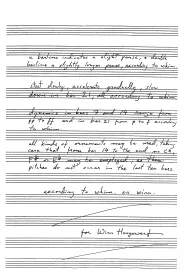 a barline indicates a slight pause, a double
barline a slightly longer pause, according to whim.
start slowly, accelerate gradually, slow
down in bar 21, all according to whim.
dynamics in bars 7 and 14 change from
pp to ff and in bar 21 from p to f according
to whim
all kinds of ornaments may be used, take
care that from bar 16 to the end no C#,
F# or G# may be employed, as these
pitches do not occur in the last ten bars.
according to whim, or whim.
for Wim